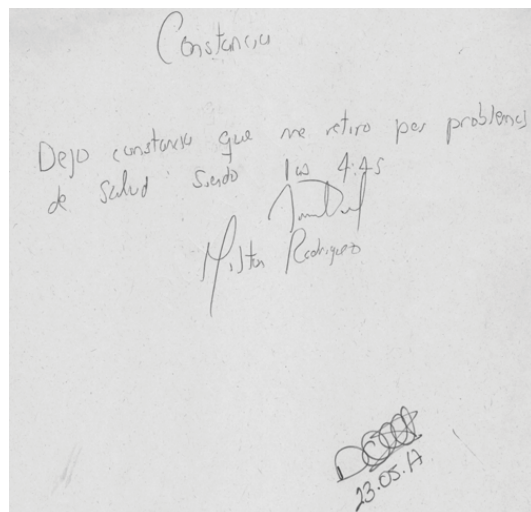 Constancia
Dejo constancia que me retiro por problemas
de salud siendo las 4:45
Milton Rodriguez
23.05.17